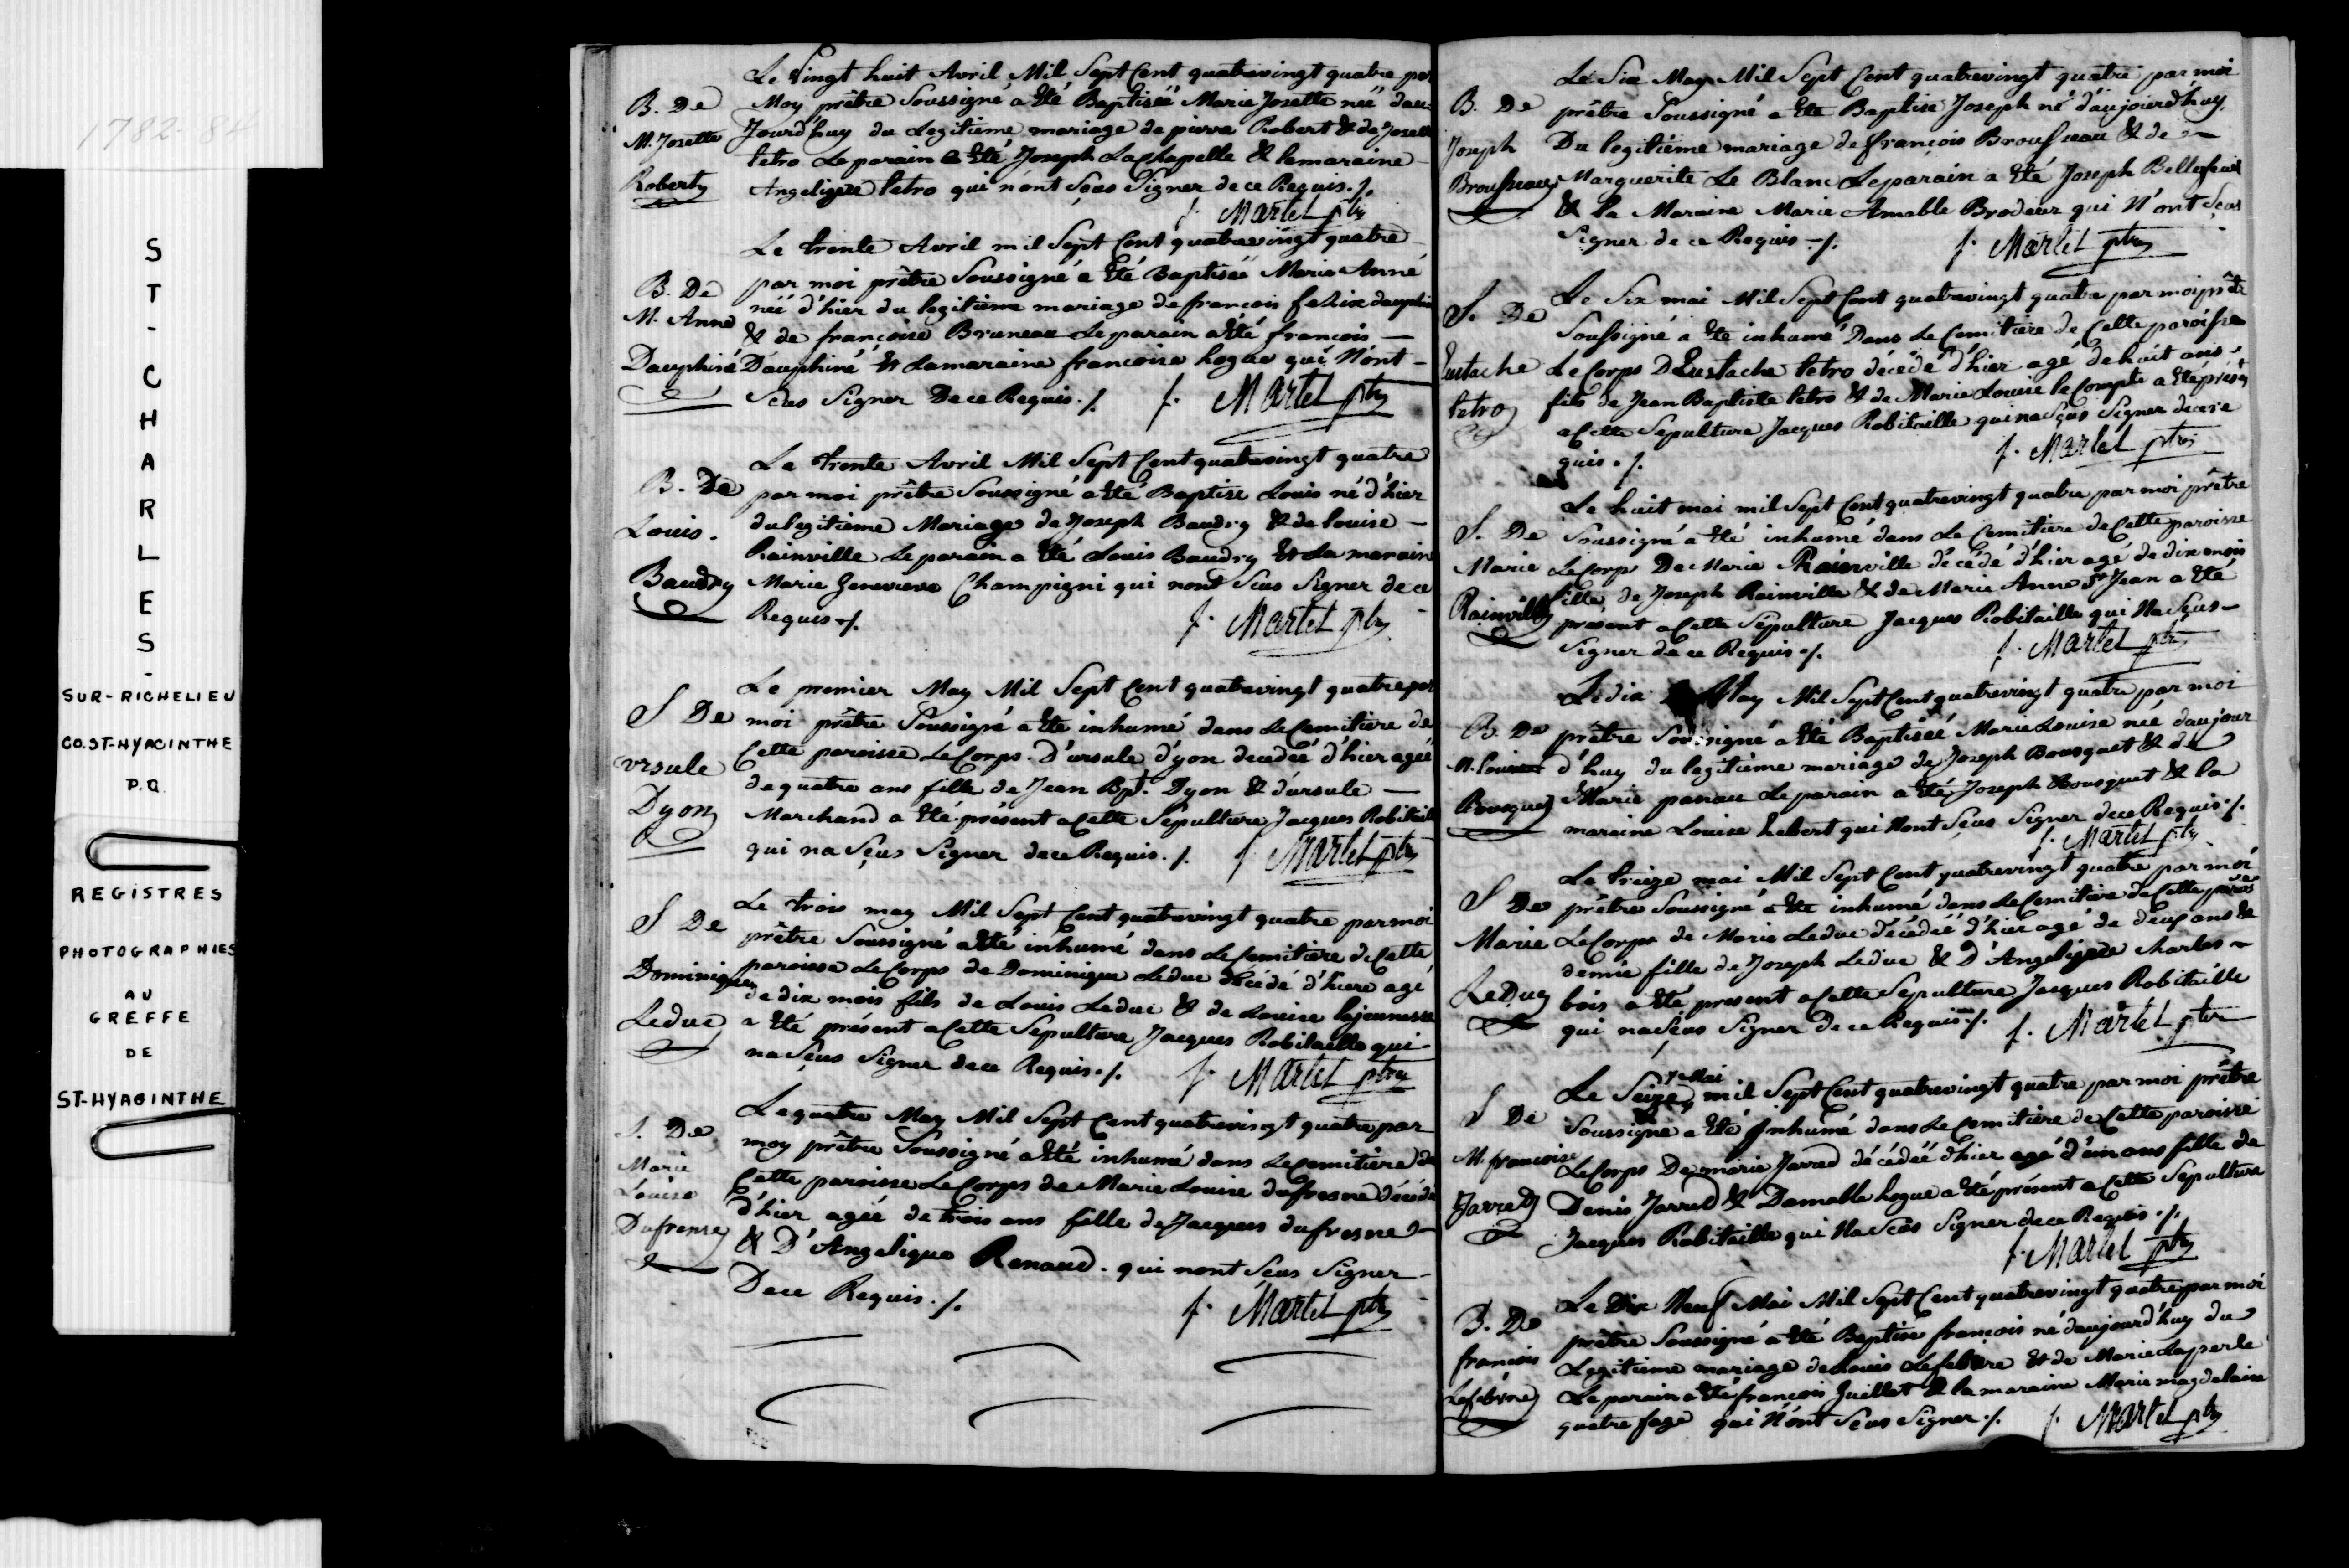 1782-84
ST-CHARLES-
SUR-RICHELIEU
CO. ST-HYACINTHE
P.Q.
REGISTRES
PHOTOGRAPHIES
AU
GREFFE
DE
ST-HYACINTHE
B. De
M. Josette
Robert
Le Vingt huit Avril Mil Sept Cent quatrevingt quatre par
Moy prêtre Soussigné a Eté Baptiséé Marie Josette néé dau
Jourd'huy du Legitieme mariage de pierre Robert & de Josette
tetro Le parain a Eté Joseph Lachapelle & lamaraine
Angelique tetro qui n'ont Sçus Signer de ce Requis ./.
f. Martel ptre
B. De
M. Anne
Dauphiné
Le trente Avril mil Sept Cent quatrevingt quatre
par moi prêtre Soussigné a Eté Baptiséé Marie Anne
néé d'hier du legitieme mariage de françois felix dauphiné
& de françoise Bruneau Le parain a Eté françois
Dauphiné Et Lamaraine francoise hogue qui N'ont
Scus Signer De ce Requis ./. f. Martel ptre
B. De
Louis
Baudry
Le trente Avril Mil Sept Cent quatrevingt quatre
par moi prêtre Soussigné a Eté Baptise Louis né d'hier
du legitieme Mariage de Joseph Baudry & de louise
Rainville Le parain a Eté Louis Baudry Et La maraine
Marie Genevieve Champigni qui nont Scus Signer de ce
Requis ./. f. Martel ptre
S De
ursule
Dyon
Le premier May Mil Sept Cent quatrevingt quatre par
moi prêtre Soussigné a Eté inhumé dans Le Cemitiere de
Cette paroisse Le Corps D'ursule d'yon decedéé d'hier agéé
de quatre ans fille de Jean Bpt. Dyon & d'ursule
Marchand a Eté présent a Cette Sepulture Jacques Robitaille
qui na Sçus Signer de ce Requis ./. f. Martel ptre
S De
Dominique
Leduc
Le trois may Mil Sept Cent quatrevingt quatre par moi
prêtre Soussigné a Eté inhumé dans Le Cemitiere de Cette
paroisse Le Corps de Dominique Leduc décédé d'hiere agé
de dix mois fils de Louis Leduc & de Louise lajeunesse
a Eté présent a Cette Sepulture Jacques Robitaille qui
na Sçus Signer de ce Requis ./. f. Martel ptre
S. De
Marie
Louise
Dufresne
Le quatre May Mil Sept Cent quatrevingt quatre par
moy prêtre Soussigné a Eté inhumé dans Le Cemitiere de
Cette paroisse Le Corps de Marie Louise dufresne décédé
d'hier agéé de trois ans fille de Jacques dufresne
& D'Angelique Renaud. qui nont Scus Signer
De ce Requis ./. f. Martel ptre
B. De
Joseph
Brousseau
Le Six May Mil Sept Cent quatrevingt quatre par moi
prêtre Soussigné a Eté Baptise Joseph né d'aujourd'huy
Du legitieme mariage de françois Brousseau & de
Marguerite Le Blanc Le parain a Eté Joseph Bellefeuil
& la Maraine Marie Amable Brodeur qui N'ont Scus
Signer de ce Requis ./. f. Martel ptre
S. De
Eustache
tetro
Le Six mai Mil Sept Cent quatrevingt quatre par moi prêtre
Soussigné a Eté inhumé Dans Le Cemitiere de Cette paroisse
Le Corps D Eustache tetro décédé d'hier agé de huit ans
fils de Jean Baptiste tetro & de Marie Louise le Compte a Eté présent
a Cette Sepulture Jacques Robitaille qui na Sçus Signer de ce re
quis ./. f. Martel ptre
S. De
Marie
Rainville
Le huit mai mil Sept Cent quatrevingt quatre par moi prêtre
Soussigné a Eté inhumé dans Le Cemitiere de Cette paroisse
Le Corp De Marie Rainville décédé d'hier agé de dix mois
fille de Joseph Rainville & de Marie Anne St Jean a Eté
present a Cette Sepulture Jacques Robitaille qui Na Sçus
Signer de ce Requis ./. f. Martel ptre
B. De
M. Louise
Bousquet
Le dix May Mil Sept Cent quatrevingt quatre par moi
prêtre Soussigné a Eté Baptiséé Marie Louise néé daujour
d'huy du legitieme mariage de Joseph Bousquet & de
Marie panau Le parain a Eté Joseph Bousquet & la
maraine Louise hebert qui Nont Scus Signer de ce Requis ./.
f. Martel ptre
S De
Marie
LeDuc
Le treize mai Mil Sept Cent quatrevingt quatre par moi
prêtre Soussigné a Eté inhumé dans Le Cemitiere de Cette parois
Le Corps de Marie Leduc décédéé d'hier agé de deux ans &
demie fille de Joseph Leduc & D'Angelique charles
bois a Eté present a Cette Sepulture Jacques Robitaille
qui na Scus Signer de ce Requis ./. f. Martel ptre
S De
M. francoise
Jarred
Mai
Le Seize mil Sept Cent quatrevingt quatre par moi prêtre
Soussigné a Eté Inhumé dans Le Cemitiere de Cette paroisse
Le Corps De marie Jarred décédéé d'hier agé d'un ans fille de
Denis Jarred & Damable hogue a Eté présent a Cette Sepulture
Jacques Robitaille qui Na Scus Signer de ce Requis ./.
f. Martel ptre
B. De
francois
Lefebvre
Le Dix Neuf Mai Mil Sept Cent quatrevingt quatre par moi
prêtre Soussigné a Eté Baptise francois né daujourd'huy du
Legitieme mariage de Louis Lefebvre Et de Marie Laperle
Le parain a Eté francois Juillet & la maraine Marie magdelaine
quatre fage qui N'ont Scus Signer ./. f. Martel ptre